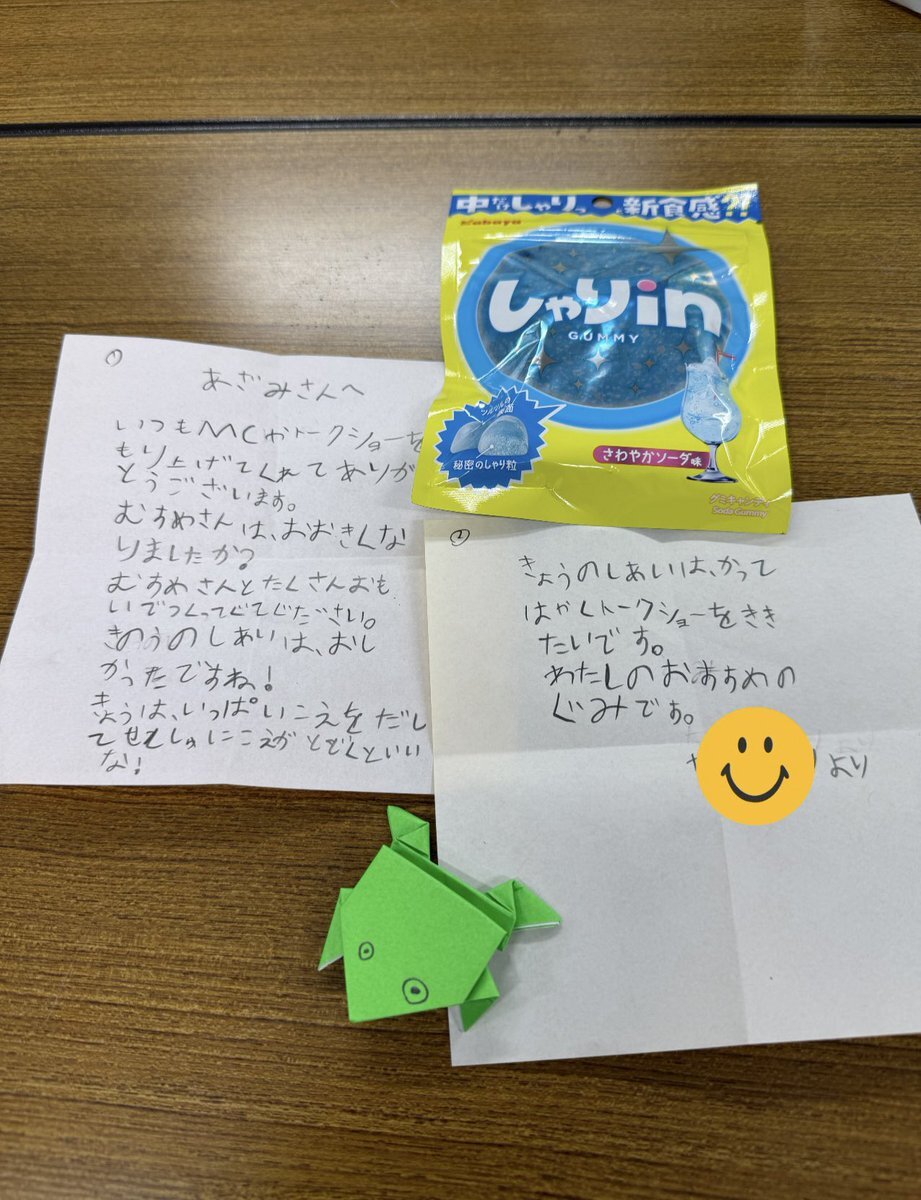 中だけしゃりっと新食感?!
Kabaya
しゃりin
GUMMY
秘密のしゃり粒
さわやかソーダ味
グミキャンディ
Soda Gummy
①
あざみさんへ
いつもMCやトークショーを
もり上げてくれてありが
とうございます。
むすめさんは、おおきくな
りましたか?
むすめさんとたくさんおも
いでつくってくてください。
きのうのしあいは、おし
かったですね!
きょうは、いっぱいこえをだし
てせんしゅにこえがとどくといい
な!
②
きょうのしあいは、かって
はやくトークショーをきき
たいです。
わたしのおすすめの
ぐみです。
より